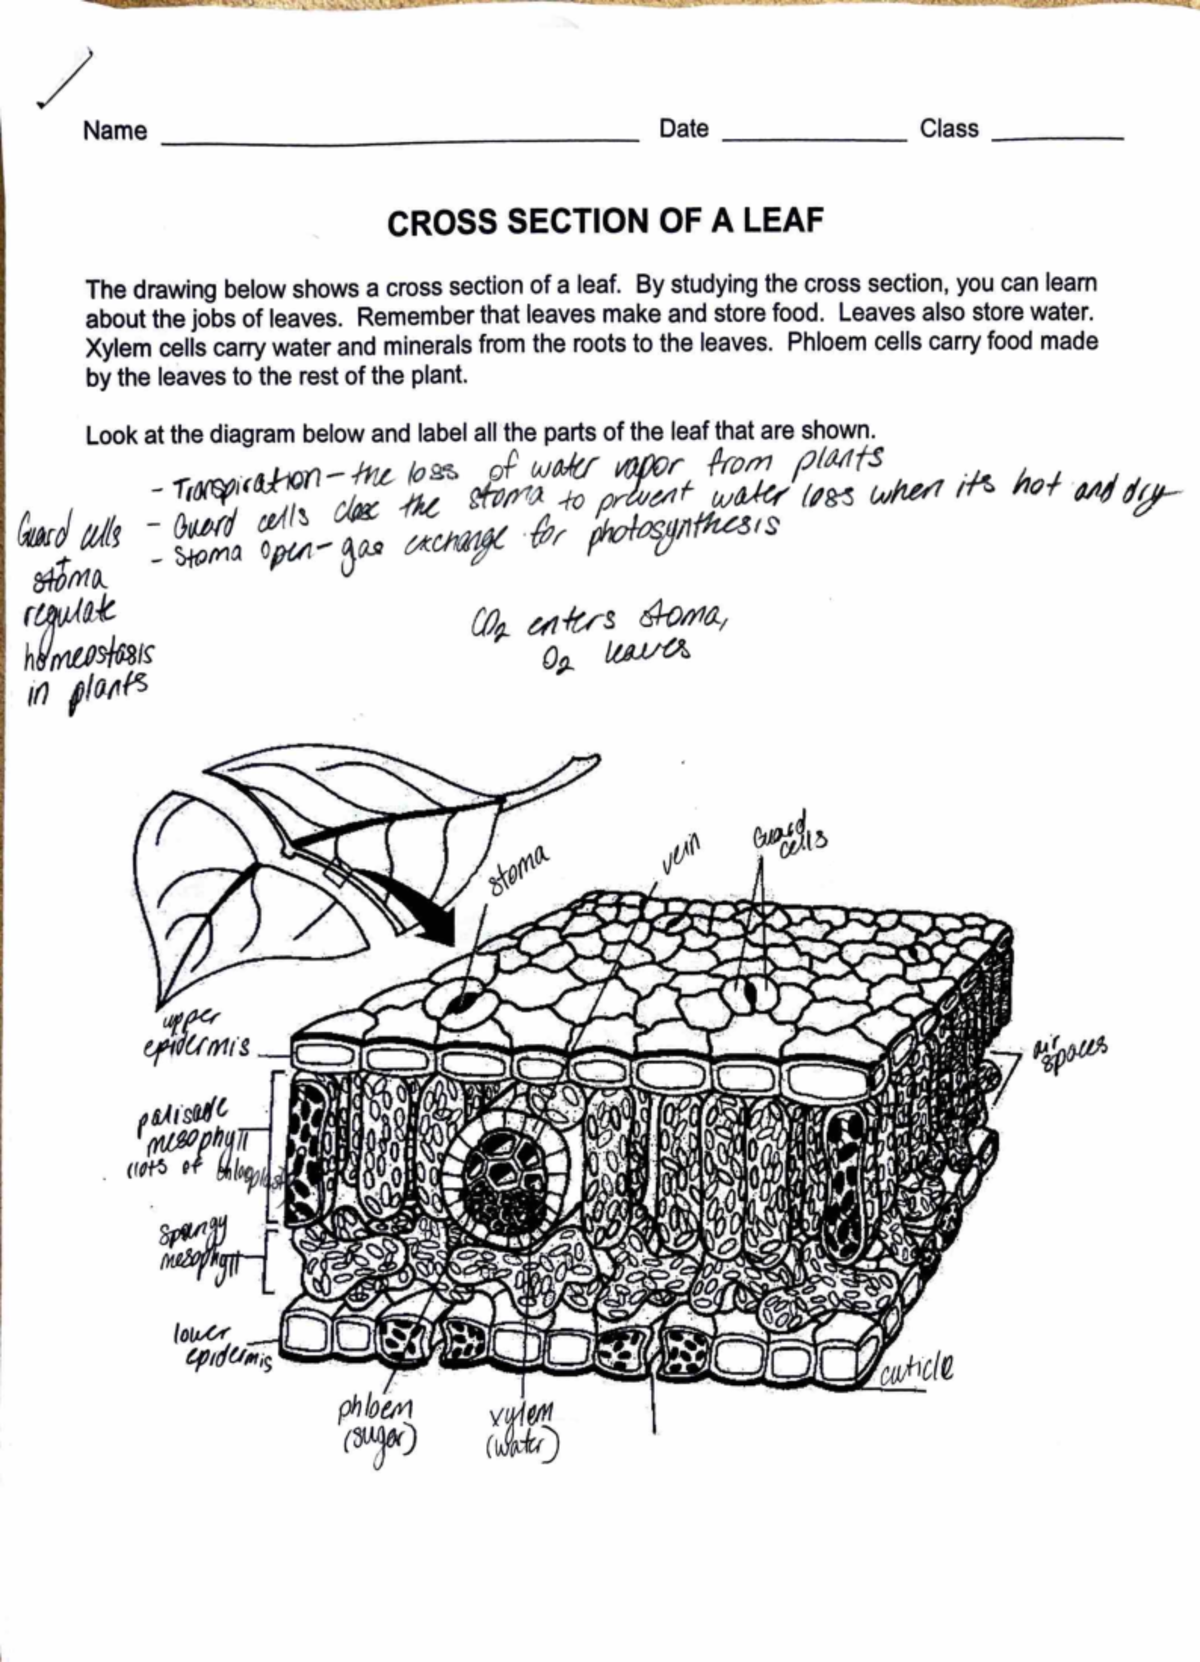 Name Date Class
CROSS SECTION OF A LEAF
The drawing below shows a cross section of a leaf. By studying the cross section, you can learn
about the jobs of leaves. Remember that leaves make and store food. Leaves also store water.
Xylem cells carry water and minerals from the roots to the leaves. Phloem cells carry food made
by the leaves to the rest of the plant.
Look at the diagram below and label all the parts of the leaf that are shown.
- Transpiration - the loss of water vapor from plants
- Guard cells close the stoma to prevent water loss when its hot and dry
- Stoma open - gas exchange for photosynthesis
Guard cells
+
stoma
regulate
homeostasis
in plants
CO2 enters stoma,
O2 leaves
stoma
vein
Guard
cells
upper
epidermis
air
spaces
palisade
mesophyll
(lots of chloroplast
spongy
mesophyll
lower
epidermis
cuticle
phloem
(sugar)
xylem
(water)